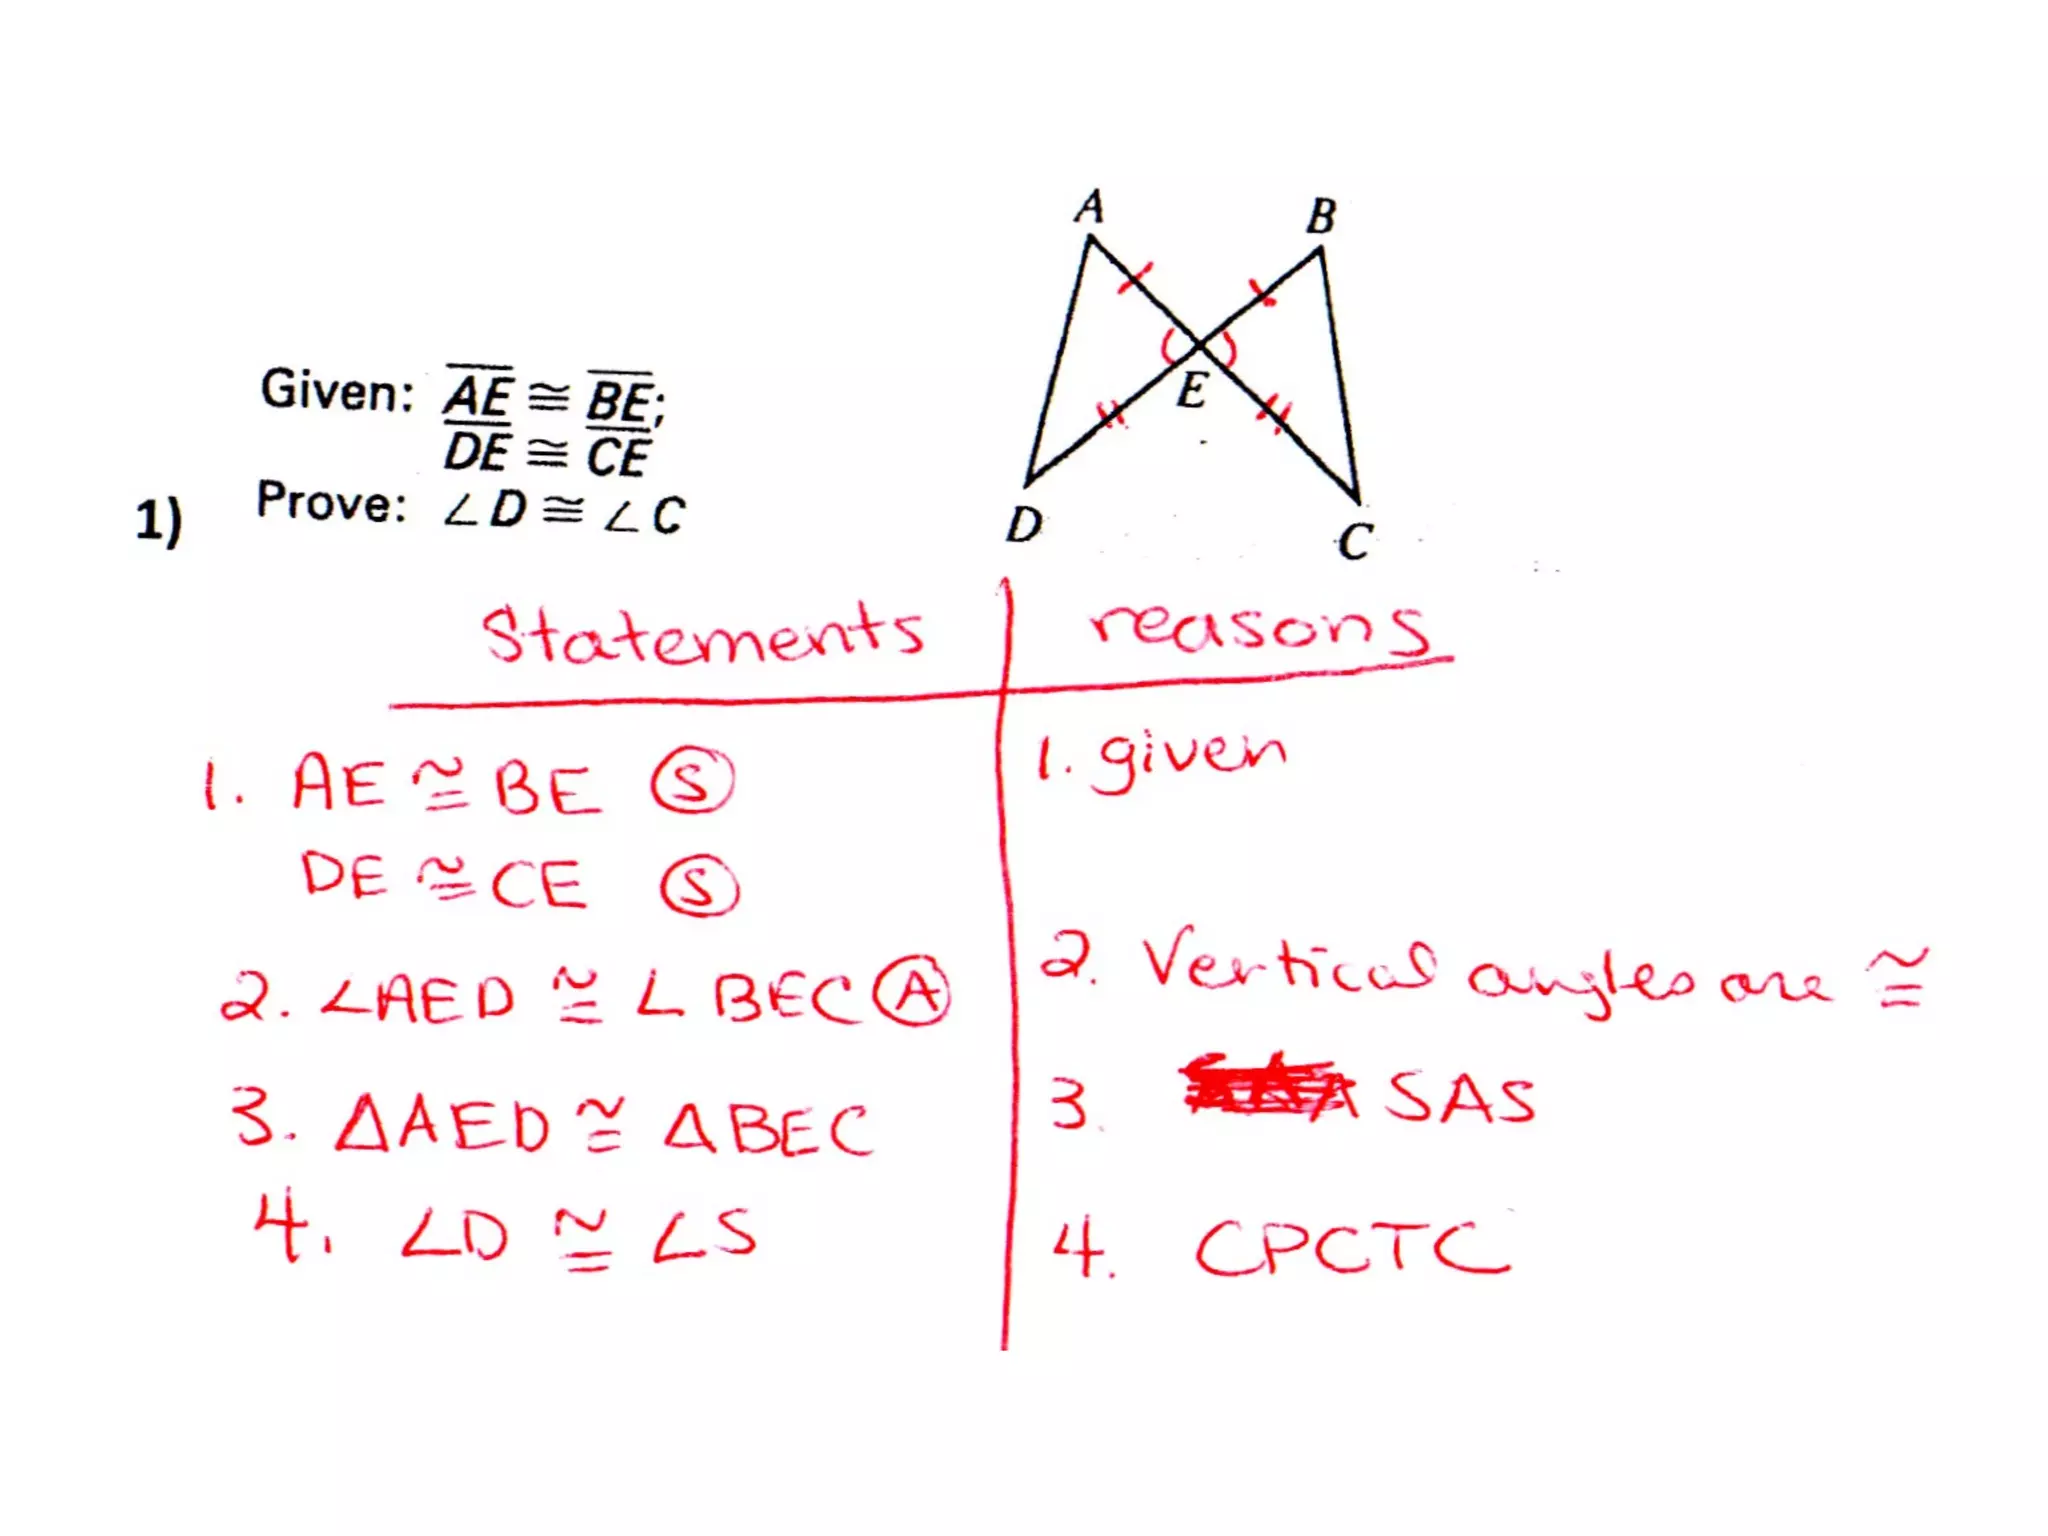 A
B
Given: AE ≅ BE;
E
DE ≅ CE
1) Prove: ∠D ≅ ∠C
D
C
Statements reasons
1. AE ≅ BE Ⓢ 1. given
DE ≅ CE Ⓢ
2. ∠AED ≅ ∠BEC Ⓐ 2. Vertical angles are ≅
3. △AED ≅ △BEC 3. SAS
4. ∠D ≅ ∠S 4. CPCTC